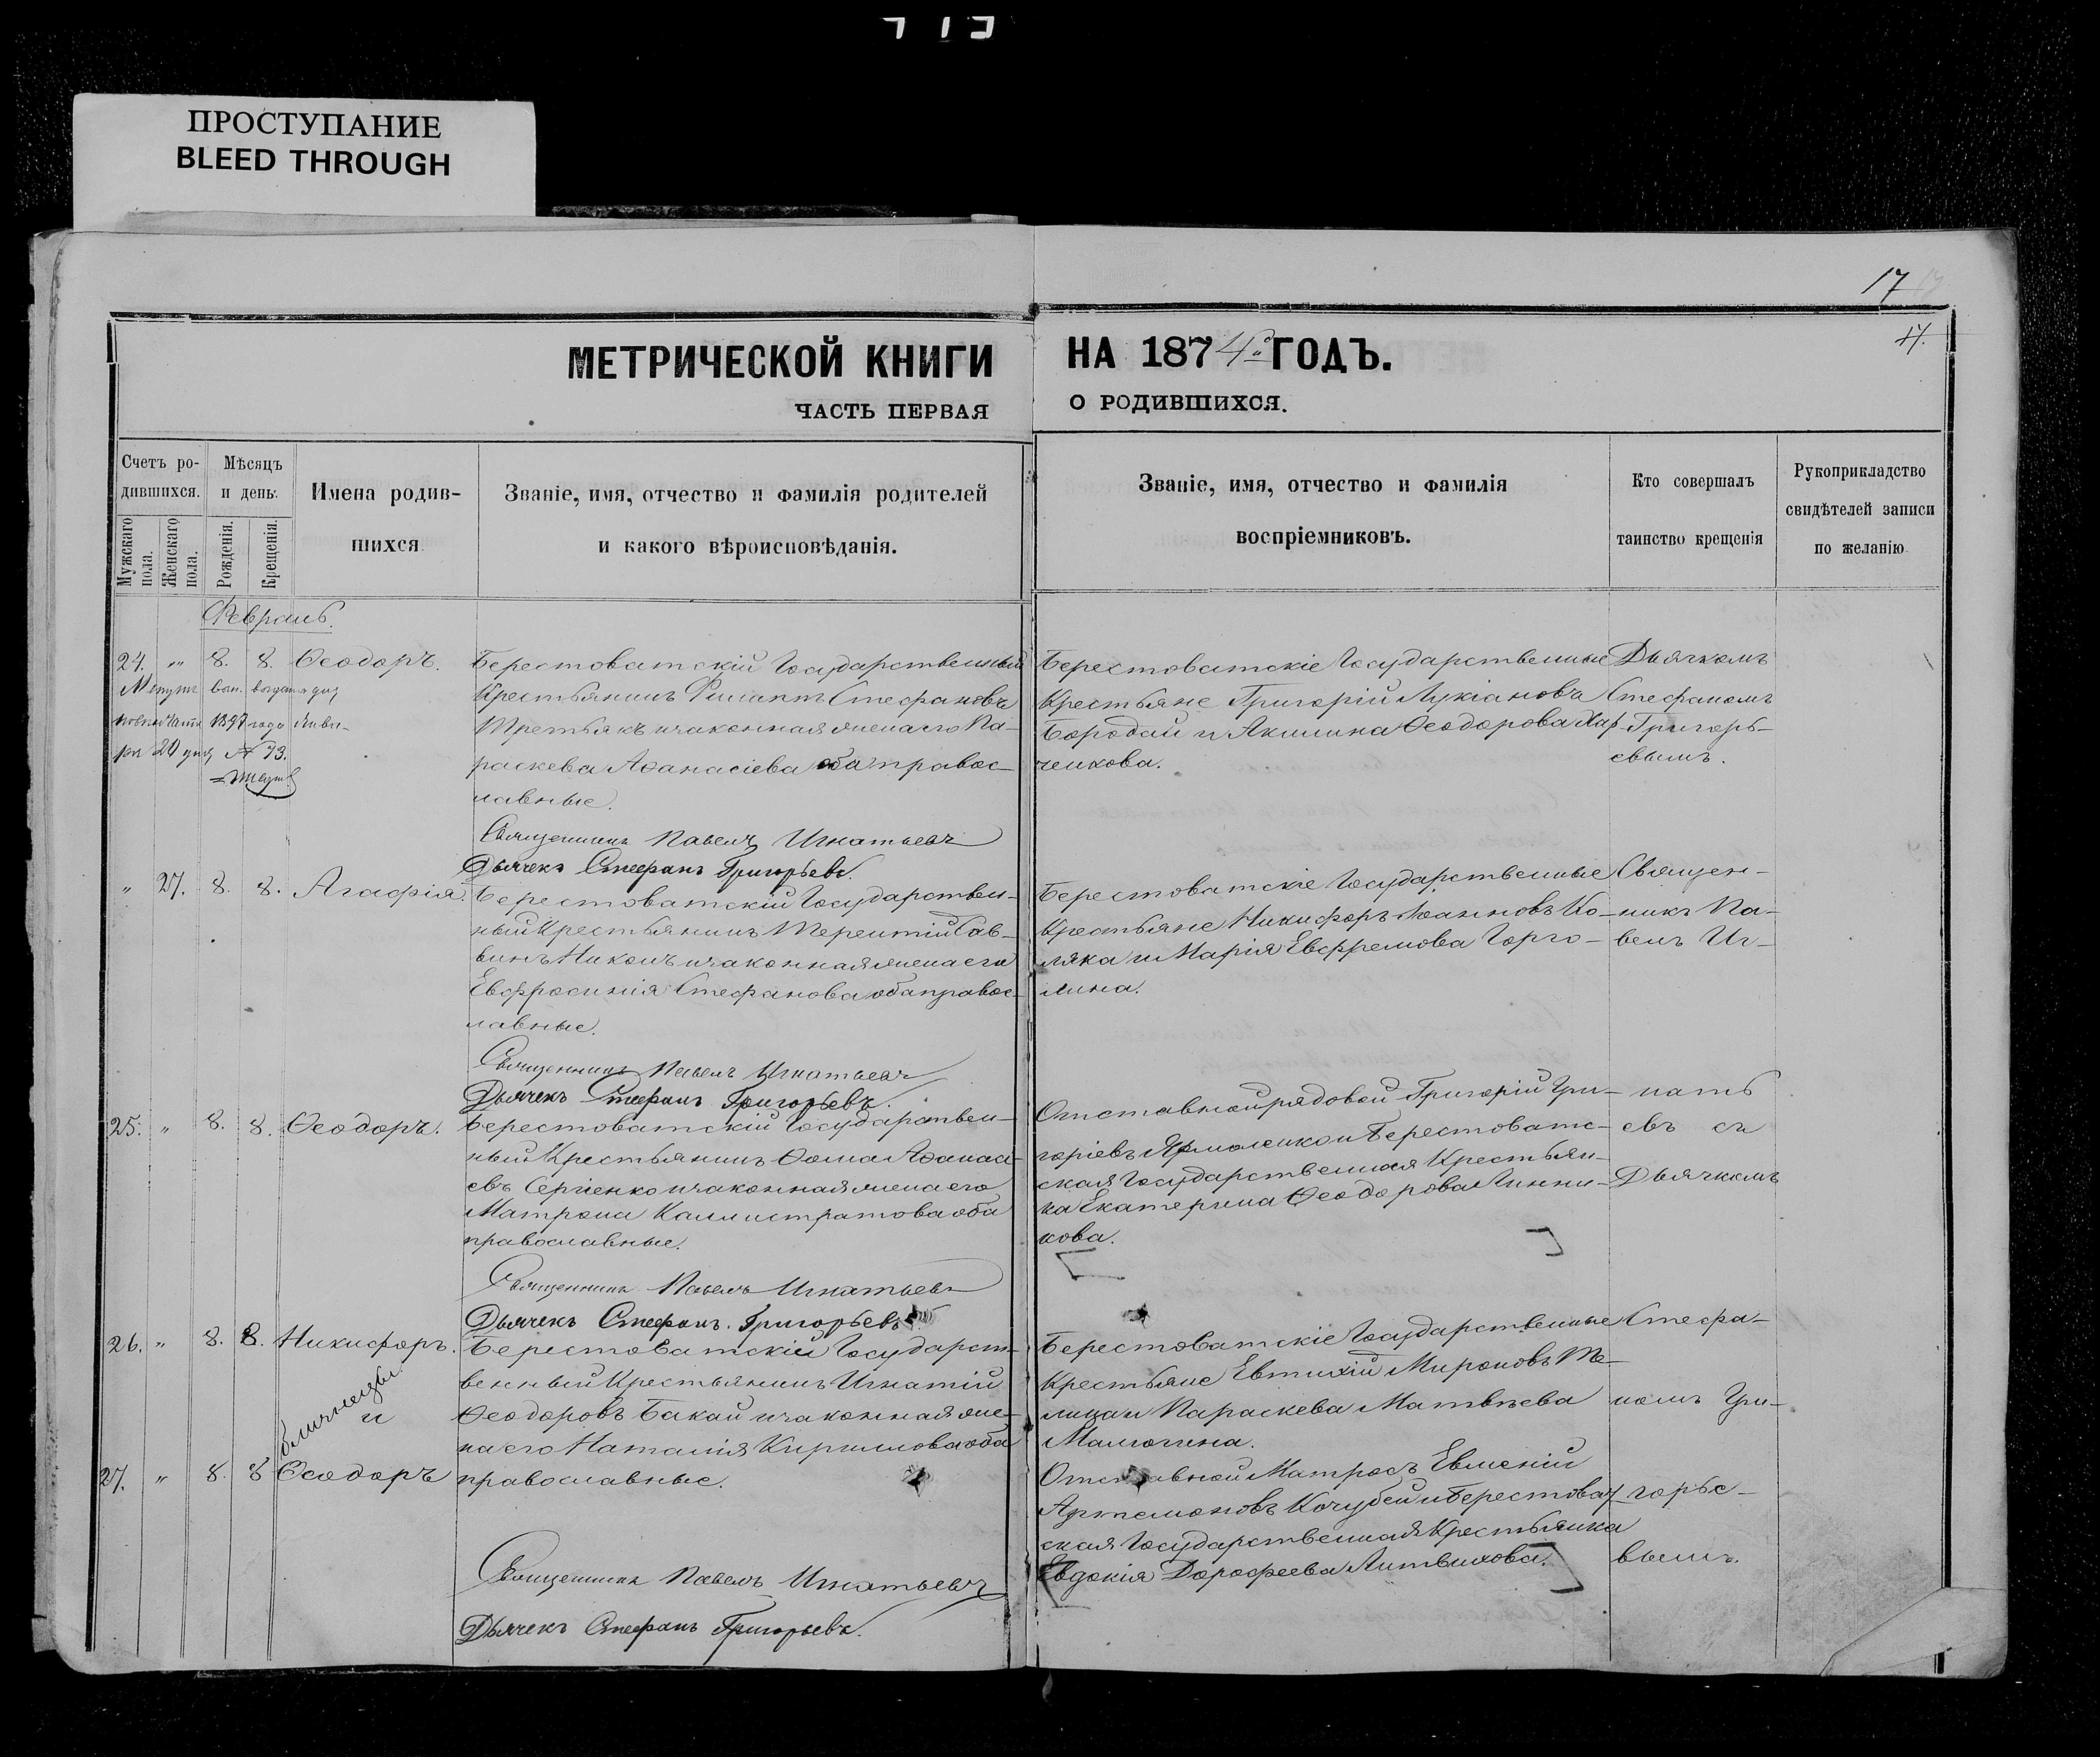 ПРОСТУПАНИЕ
BLEED THROUGH
17
17.
МЕТРИЧЕСКОЙ КНИГИ НА 1874го ГОДЪ.
ЧАСТЬ ПЕРВАЯ О РОДИВШИХСЯ.
Счетъ ро-
дившихся.
Мужскаго пола.
Женскаго пола.
Мѣсяцъ
и день.
Рожденія.
Крещенія.
Имена родив-
шихся
Званіе, имя, отчество и фамилія родителей
и какого вѣроисповѣданія.
Званіе, имя, отчество и фамилія
воспріемниковъ.
Кто совершалъ
таинство крещенія
Рукоприкладство
свидѣтелей записи
по желанію
Февраль.
24. " 8. 8. Ѳеодоръ.
1897 года Янва-
ря 20 дня № 73.
Берестоватскій Государственный
Крестьянинъ Филиппъ Стефановъ
Третьякъ и законная жена его Па-
раскева Аѳанасіева оба правос-
лавные.
Священникъ Павелъ Игнатьевъ
Дьячекъ Стефанъ Григорьевъ.
Берестоватскіе Государственные
Крестьяне Григорій Лукіановъ
Бородай и Акилина Ѳеодорова Хар-
ченкова.
Дьячкомъ
Стефаномъ
Григорь-
евымъ.
" 27. 8. 8. Агафія.
Берестоватскій Государствен-
ный Крестьянинъ Терентій Сав-
винъ Никонъ и законная жена его
Евфросинія Стефанова оба правос-
лавные.
Священникъ Павелъ Игнатьевъ
Дьячекъ Стефанъ Григорьевъ.
Берестоватскіе Государственные
Крестьяне Никифоръ Іоанновъ Ко-
ляка и Марія Евфремова Горго-
лина.
Священ-
никъ Па-
велъ Иг-
25. " 8. 8. Ѳеодоръ.
Берестоватскій Государствен-
ный Крестьянинъ Ѳома Аѳанасі-
евъ Сергіенко и законная жена его
Матрона Каллистратова оба
православные.
Священникъ Павелъ Игнатьевъ
Дьячекъ Стефанъ Григорьевъ
Отставной рядовой Григорій Гри-
горіевъ Ярмоленко и Берестоват-
ская Государственная Крестьян-
ка Екатерина Ѳеодорова Линни-
кова.
нать
евъ съ
Дьячкомъ
26. " 8. 8. Никифоръ.
близнецы
и
27. " 8. 8 Ѳеодоръ
Берестоватскій Государст-
венный Крестьянинъ Игнатій
Ѳеодоровъ Бакай и законная же-
на его Наталія Кириллова оба
православные.
Священникъ Павелъ Игнатьевъ
Дьячекъ Стефанъ Григорьевъ.
Берестоватскіе Государственные
Крестьяне Евтихій Мироновъ Те-
лица и Параскева Матвѣева
Малютина.
Отставной Матросъ Евменій
Артемоновъ Кочубей и Берестоват-
ская Государственная Крестьянка
Евдокія Дорофеева Литвинова.
Стефа-
номъ Гри-
горье-
вымъ.